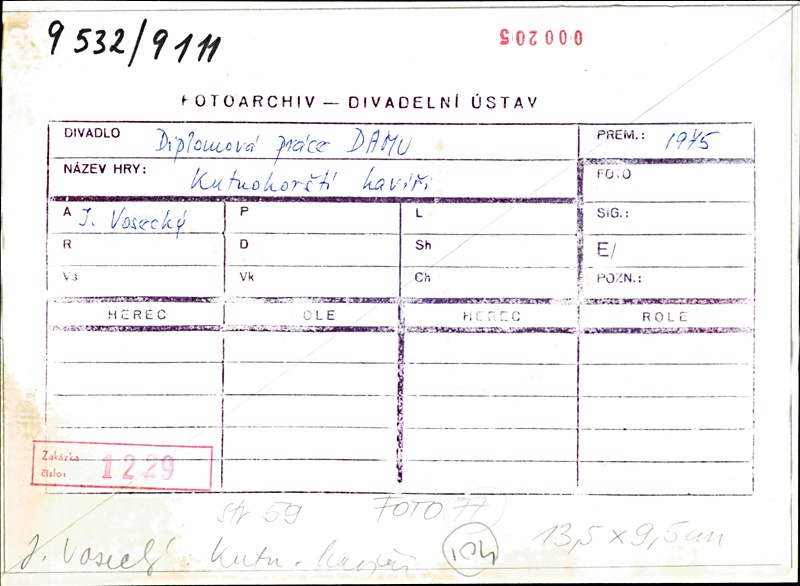 9 532/9 111
000205
FOTOARCHIV — DIVADELNÍ ÚSTAV
DIVADLO Diplomová práce DAMU PREM.: 1975
NÁZEV HRY: Kutnohorští havíři FOTO
A J. Vosecký P L SIG.:
R D Sh E/
Vs Vk Ch POZN.:
HEREC OLE HEREC ROLE
Zakázka
číslo: 1229
str 59 FOTO 77
13,5 x 9,5 cm
J. Vosecký Kutn. havíři